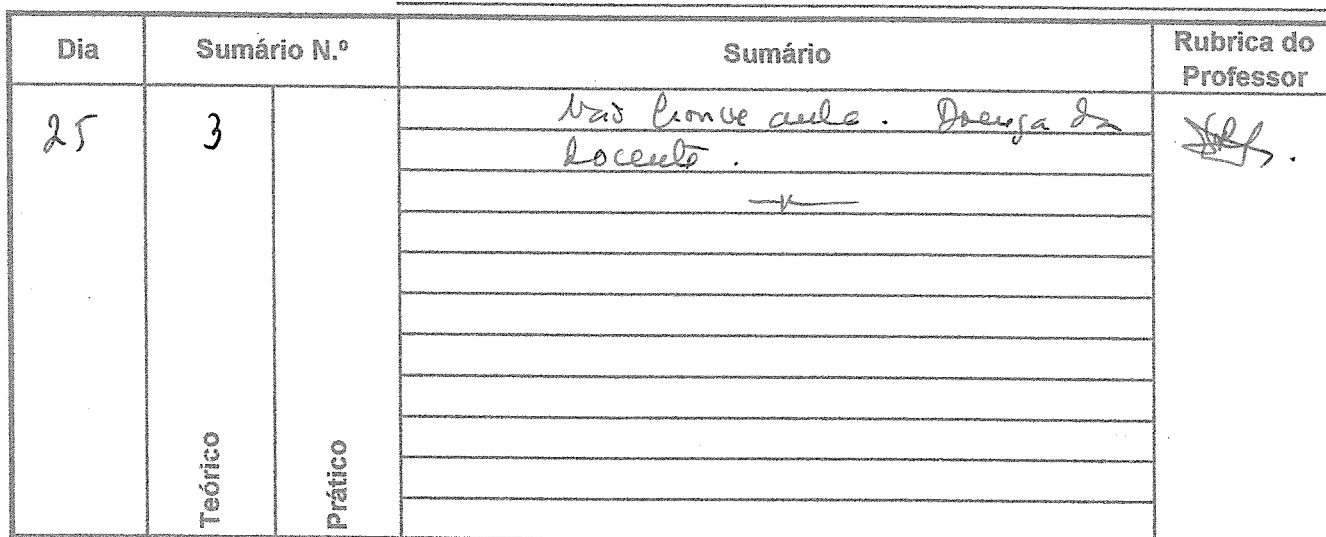 Dia
Sumário N.º
Sumário
Rubrica do
Professor
25
3
Não houve aula. Doença da
docente.
Teórico
Prático